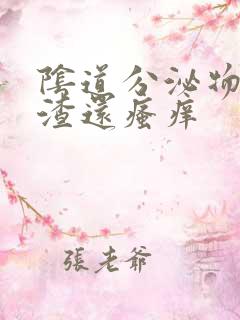 陰道分泌物
渣還瘙痒
張老爺